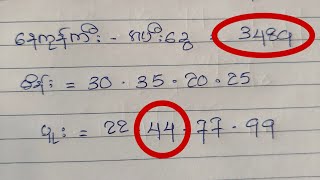 နေ့ကုန်ကြီး - ၈ပ်ီးခွေ 3489
မိန်း = 30 · 35 · 20 · 25
ပူး = 22 44 · 77 · 99